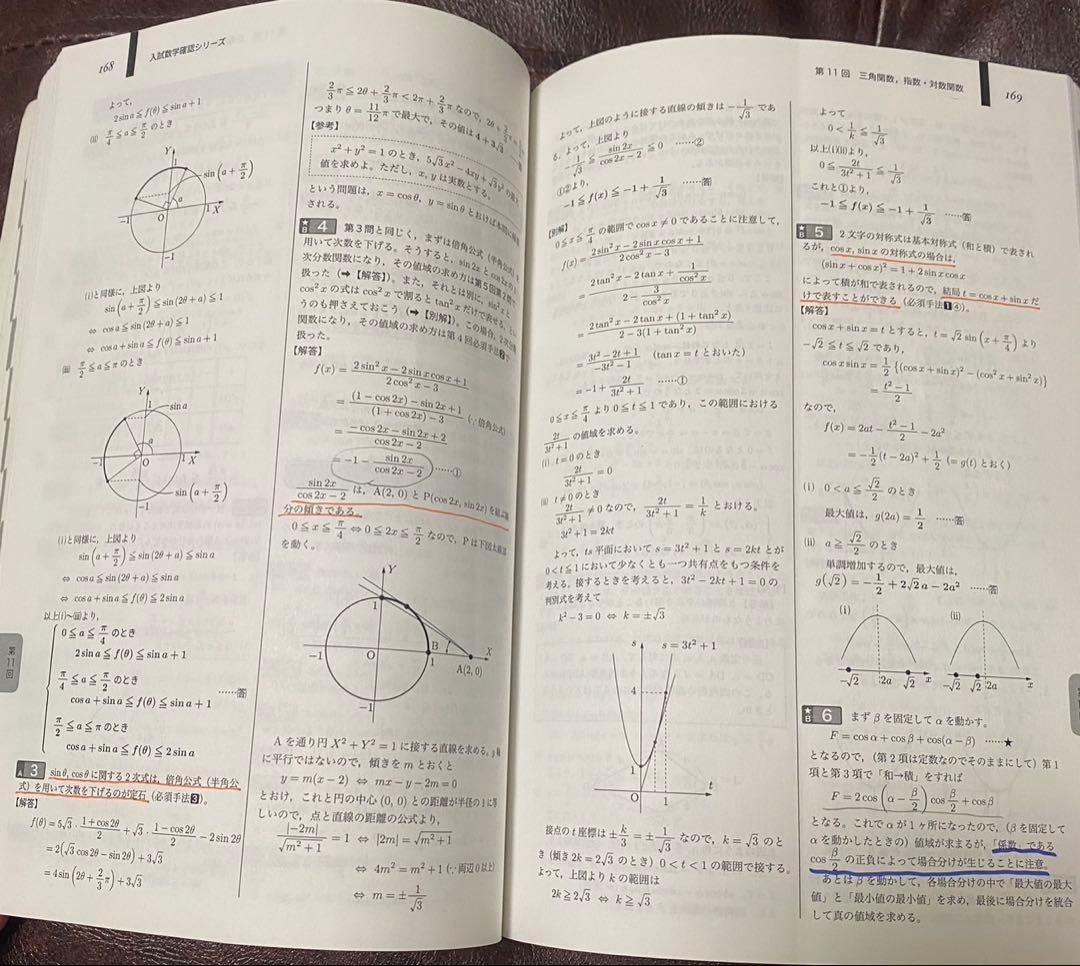 168
入試数学確認シリーズ
よって，
2sin a ≦ f(θ) ≦ sin a + 1
(ii) π/4 ≦ a ≦ π/2 のとき
Y
1
sin(a + π/2)
a
−1
O
1
X
−1
(i)と同様に，上図より
sin(a + π/2) ≦ sin(2θ + a) ≦ 1
⇔ cos a ≦ sin(2θ + a) ≦ 1
⇔ cos a + sin a ≦ f(θ) ≦ sin a + 1
(iii) π/2 ≦ a ≦ π のとき
Y
1
sin a
a
−1
O
1
X
−1
sin(a + π/2)
(i)と同様に，上図より
sin(a + π/2) ≦ sin(2θ + a) ≦ sin a
⇔ cos a ≦ sin(2θ + a) ≦ sin a
⇔ cos a + sin a ≦ f(θ) ≦ 2sin a
以上(i)〜(iii)より，
0 ≦ a ≦ π/4 のとき
2sin a ≦ f(θ) ≦ sin a + 1
π/4 ≦ a ≦ π/2 のとき
cos a + sin a ≦ f(θ) ≦ sin a + 1 ……答
π/2 ≦ a ≦ π のとき
cos a + sin a ≦ f(θ) ≦ 2sin a
第11回
★A 3 sinθ, cosθ に関する2次式は，倍角公式（半角公
式）を用いて次数を下げるのが定石（必須手法3）。
【解答】
f(θ) = 5√3・(1 + cos2θ)/2 + √3・(1 − cos2θ)/2 − 2sin2θ
= 2(√3 cos2θ − sin2θ) + 3√3
= 4sin(2θ + 2/3 π) + 3√3
2/3 π ≦ 2θ + 2/3 π < 2π + 2/3 π なので，2θ + 2/3 π
つまり θ = 11/12 π で最大で，その値は 4 + 3√3
【参考】
x² + y² = 1 のとき，5√3x² − 4xy + √3y² の最大
値を求めよ。ただし，x, y は実数とする。
という問題は，x = cosθ，y = sinθ とおけば本問に帰着
される。
★B 4 第3問と同じく，まずは倍角公式（半角公式）を
用いて次数を下げる。そうすると，sin2x と cos2x の1
次分数関数になり，その値域の求め方は第5回第2問で
扱った（➡【解答】）。また，それとは別に，sin²x と
cos²x の式は cos²x で割ると tan²x だけで表せる，とい
うのも押さえておこう（➡【別解】）。この場合，2次分数
関数になり，その値域の求め方は第4回必須手法2で
扱った。
【解答】
f(x) = (2sin²x − 2sin x cos x + 1)/(2cos²x − 3)
= ((1 − cos2x) − sin2x + 1)/((1 + cos2x) − 3) (∵倍角公式)
= (−cos2x − sin2x + 2)/(cos2x − 2)
= −1 − sin2x/(cos2x − 2) ……①
sin2x/(cos2x − 2) は，A(2, 0) と P(cos2x, sin2x) を結ぶ線
分の傾きである。
0 ≦ x ≦ π/4 ⇔ 0 ≦ 2x ≦ π/2 なので，P は下図太線部
を動く。
Y
1
−1
O
B
1
A(2, 0)
X
−1
A を通り円 X² + Y² = 1 に接する直線を求める。y 軸
に平行ではないので，傾きを m とおくと
y = m(x − 2) ⇔ mx − y − 2m = 0
とおけ，これと円の中心 (0, 0) との距離が半径の1に等
しいので，点と直線の距離の公式より，
|−2m|/√(m² + 1) = 1 ⇔ |2m| = √(m² + 1)
⇔ 4m² = m² + 1 (∵両辺0以上)
⇔ m = ±1/√3
第11回 三角関数，指数・対数関数
169
よって，上図のように接する直線の傾きは −1/√3 であ
る。よって，上図より
−1/√3 ≦ sin2x/(cos2x − 2) ≦ 0 ……②
①②より，
−1 ≦ f(x) ≦ −1 + 1/√3 ……答
【別解】
0 ≦ x ≦ π/4 の範囲で cos x ≠ 0 であることに注意して，
f(x) = (2sin²x − 2sin x cos x + 1)/(2cos²x − 3)
= (2tan²x − 2tan x + 1/cos²x)/(2 − 3/cos²x)
= (2tan²x − 2tan x + (1 + tan²x))/(2 − 3(1 + tan²x))
= (3t² − 2t + 1)/(−3t² − 1) (tan x = t とおいた)
= −1 + 2t/(3t² + 1) ……①
0 ≦ x ≦ π/4 より 0 ≦ t ≦ 1 であり，この範囲における
2t/(3t² + 1) の値域を求める。
(i) t = 0 のとき
2t/(3t² + 1) = 0
(ii) t ≠ 0 のとき
2t/(3t² + 1) ≠ 0 なので，2t/(3t² + 1) = 1/k とおける。
3t² + 1 = 2kt
よって，ts 平面において s = 3t² + 1 と s = 2kt とが
0 < t ≦ 1 において少なくとも一つ共有点をもつ条件を
考える。接するときを考えると，3t² − 2kt + 1 = 0 の
判別式を考えて
k² − 3 = 0 ⇔ k = ±√3
s
s = 3t² + 1
4
1
O
1
t
接点の t 座標は ±k/3 = ±1/√3 なので，k = √3 のと
き（傾き 2k = 2√3 のとき）0 < t < 1 の範囲で接する。
よって，上図より k の範囲は
2k ≧ 2√3 ⇔ k ≧ √3
よって
0 < 1/k ≦ 1/√3
以上(i)(ii)より，
0 ≦ 2t/(3t² + 1) ≦ 1/√3
これと①より，
−1 ≦ f(x) ≦ −1 + 1/√3 ……答
★B 5 2文字の対称式は基本対称式（和と積）で表され
るが，cos x, sin x の対称式の場合は，
(sin x + cos x)² = 1 + 2sin x cos x
によって積が和で表されるので，結局 t = cos x + sin x だ
けで表すことができる（必須手法1④）。
【解答】
cos x + sin x = t とすると，t = √2 sin(x + π/4) より
−√2 ≦ t ≦ √2 であり，
cos x sin x = 1/2 {(cos x + sin x)² − (cos²x + sin²x)}
= (t² − 1)/2
なので，
f(x) = 2at − (t² − 1)/2 − 2a²
= −1/2 (t − 2a)² + 1/2 (= g(t) とおく)
(i) 0 < a ≦ √2/2 のとき
最大値は，g(2a) = 1/2 ……答
(ii) a ≧ √2/2 のとき
単調増加するので，最大値は，
g(√2) = −1/2 + 2√2 a − 2a² ……答
(i)
−√2
2a
√2
x
(ii)
−√2
√2
2a
x
★B 6 まず β を固定して α を動かす。
F = cosα + cosβ + cos(α − β) ……★
となるので，（第2項は定数なのでそのままにして）第1
項と第3項で「和→積」をすれば
F = 2cos(α − β/2)cos β/2 + cosβ
となる。これで α が1ヶ所になったので，（β を固定して
α を動かしたときの）値域が求まるが，「係数」である
cos β/2 の正負によって場合分けが生じることに注意。
あとは β を動かして，各場合分けの中で「最大値の最大
値」と「最小値の最小値」を求め，最後に場合分けを統合
して真の値域を求める。